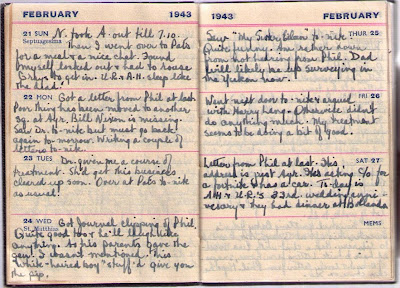 FEBRUARY 1943
21 SUN N. took A. out till 7.10.
Septuagesima Then I went over to Pats
for a meal & a nice chat. Found
myself locked out & had to rouse
Greg to get in. U.R. & A.H. sleep like
the dead!
22 MON Got a letter from Phil at last
Poor thing has been moved to another
sq. at Ayr. Bill Nixon is missing.
Saw Dr. to-nite but must go back
again to-morrow. Writing a couple of
letters to-nite.
23 TUES Dr. given me a course of
treatment. Shd get this business
cleared up soon. Over at Pats to-nite
as usual!
24 WED Got Journal clipping of Phil,
St. Matthias Quite good too & he'll laugh like
anything. As his parents gave the
gen. I wasnt mentioned. This
"white-haired boy" stuff'd give you
the pip.
1943 FEBRUARY
Saw "My Sister Eileen" to-nite THUR 25
Quite funny. Am rather down
from not hearing from Phil. Dad
will likely be up surveying in
the Yukon now.
Went next door to-nite & argued FRI 26
with Harry. Otherwise didn't
do anything much. My treatment
seems to be doing a bit of good.
Letter from Phil at last. His SAT 27
address is just Ayr. He's asking C/O. for
a fortnite & has a car. To-day is
AH & U.R.'s 33rd. wedding anni-
versary & they had dinner at
MEMS